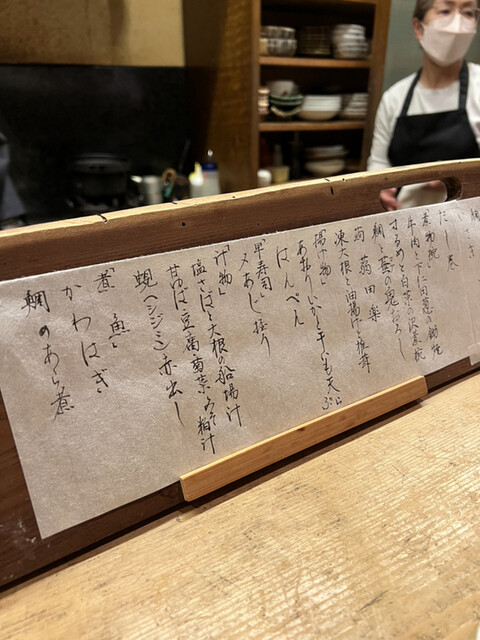 だし巻
煮物椀
牛肉と下仁田葱の鍬焼
するめと白菜の沢煮椀
鯛と蕪の鬼おろし
蒟蒻田楽
凍大根と油揚げと椎茸
「揚げ物」
あおりいかと干いも天ぷら
はんぺん
「早寿司」
〆あじ握り
「汁物」
塩さばと大根の船場汁
甘ゆば豆腐菊菜みそ粕汁
蜆（シジミ）赤出し
「煮魚」
かわはぎ
鯛のあら煮